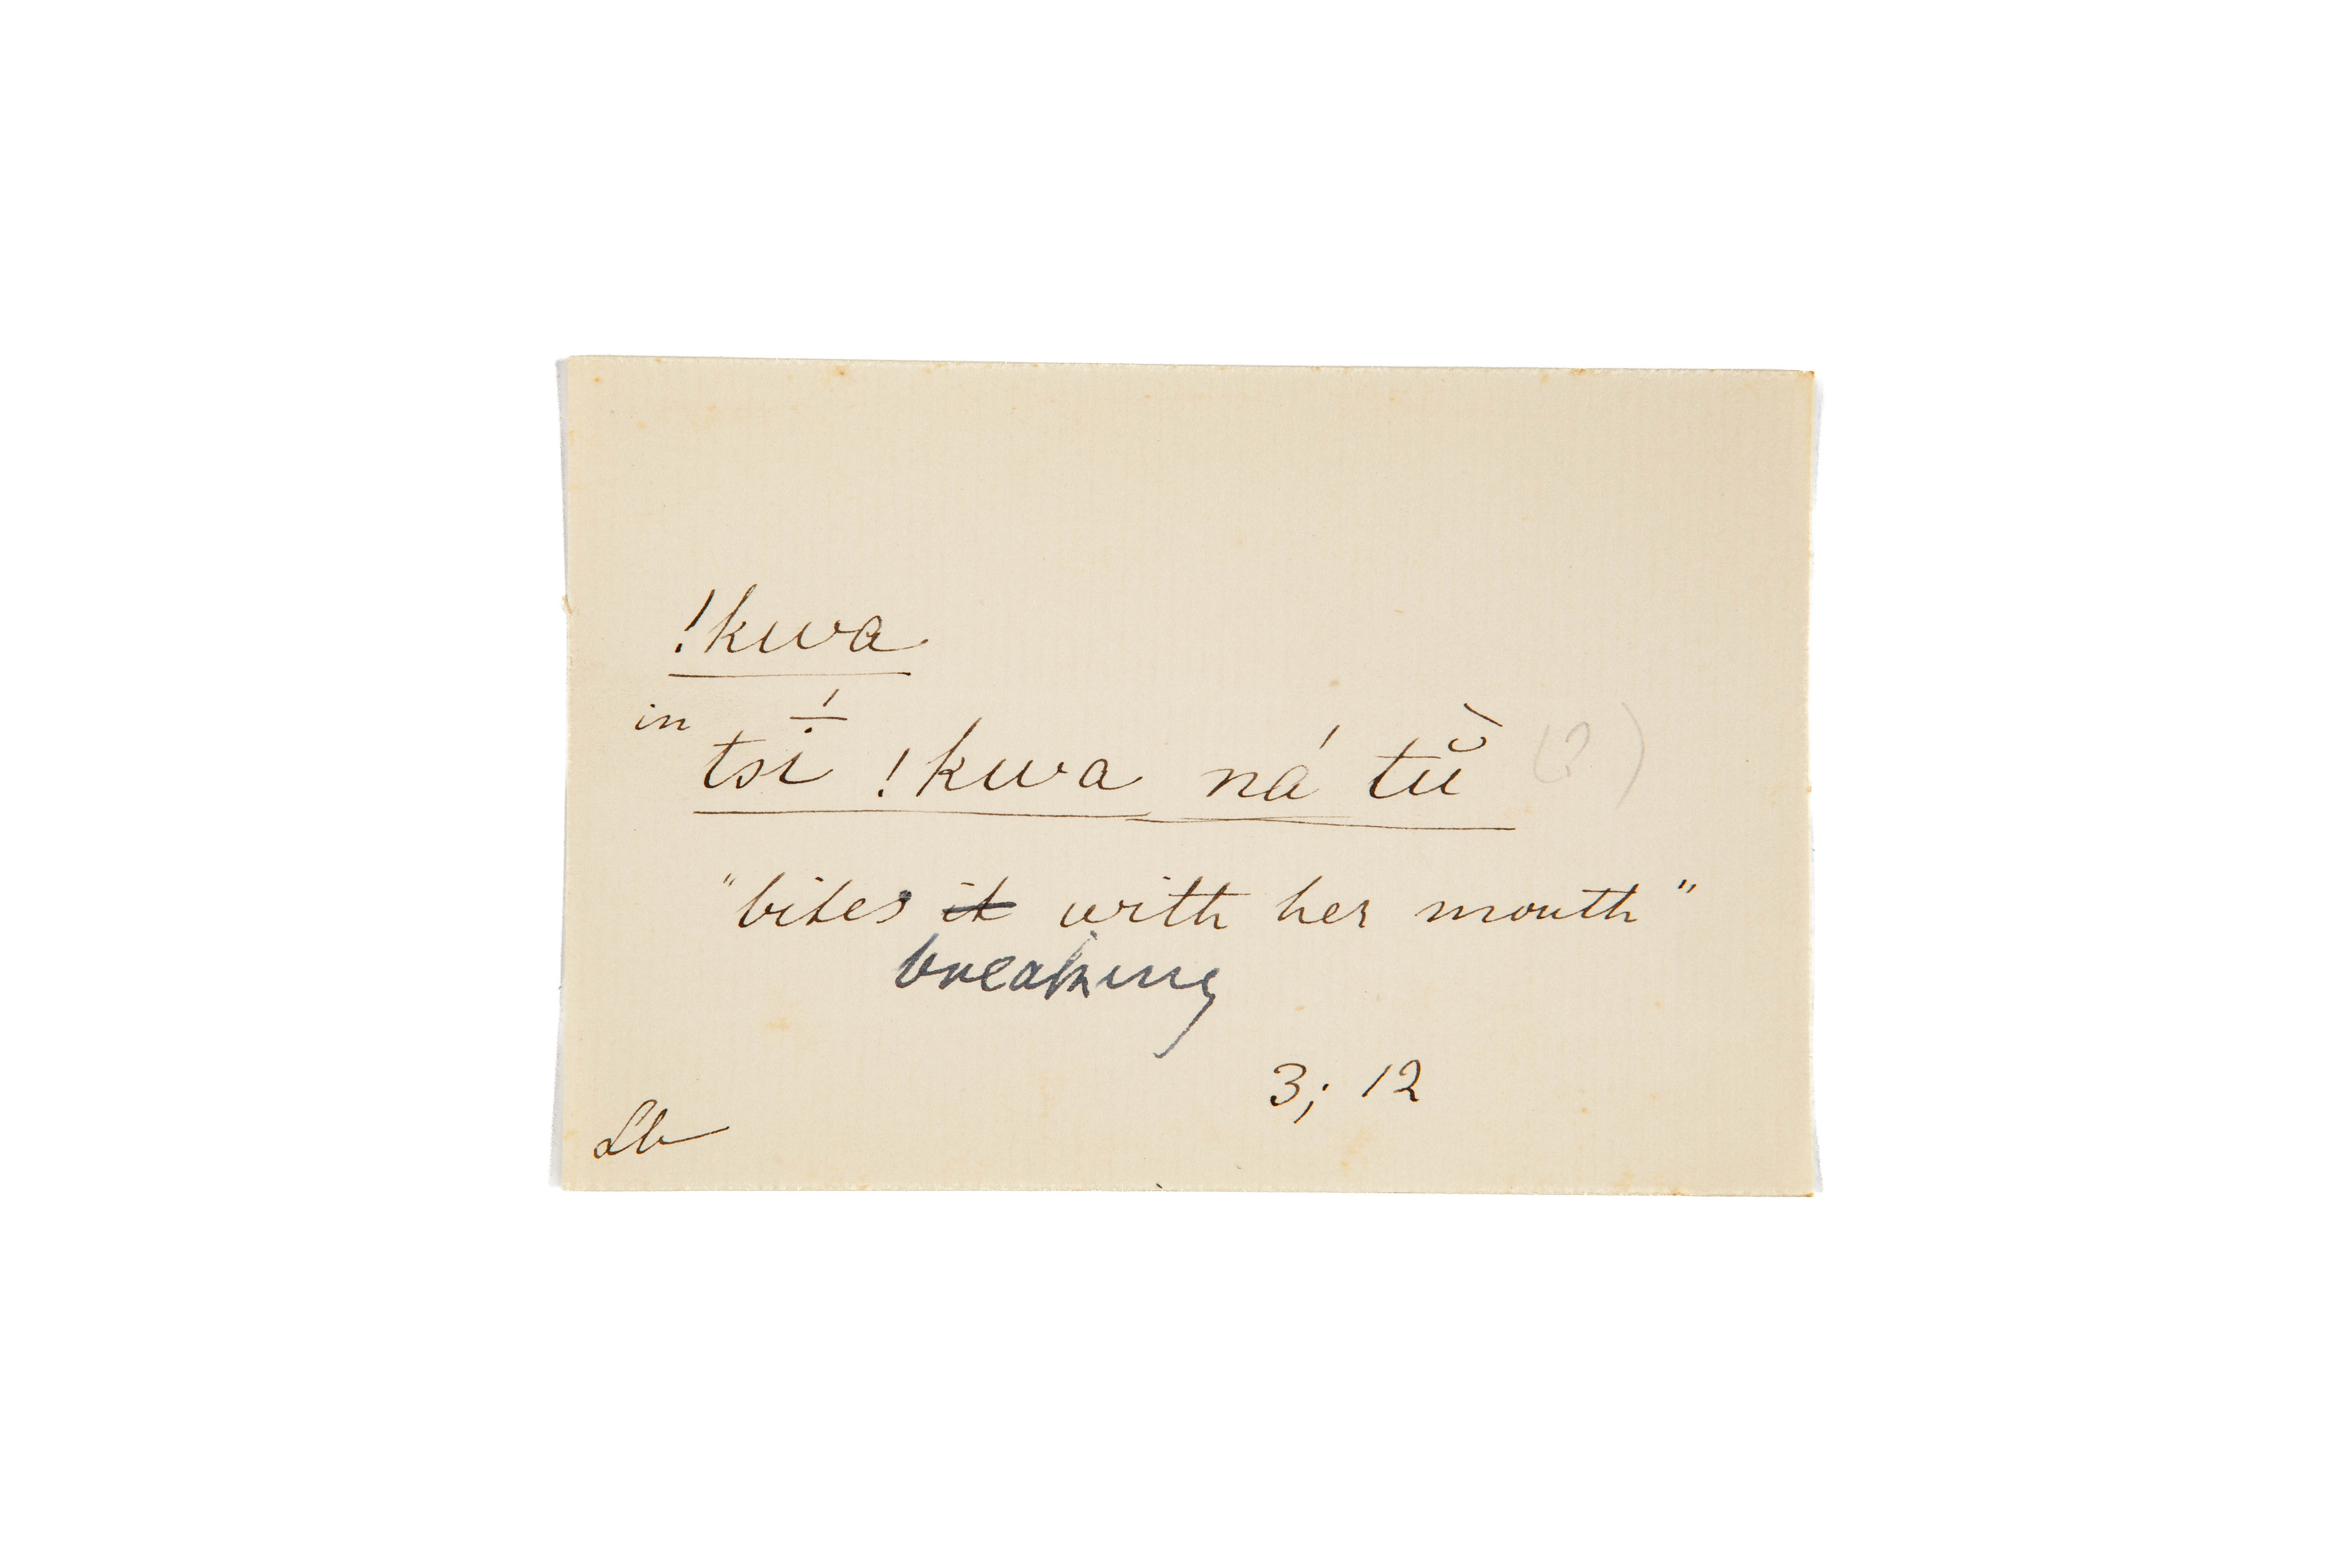 !kwa
in tsī́ !kwa ná tŭ̀ (?)
"bites it with her mouth"
breaking
3; 12
Lb